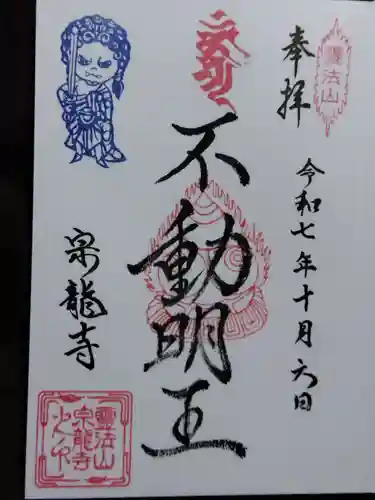 奉拝
靈法山
令和七年十月六日
不動明王
宗龍寺
靈法山
宗龍寺
之印